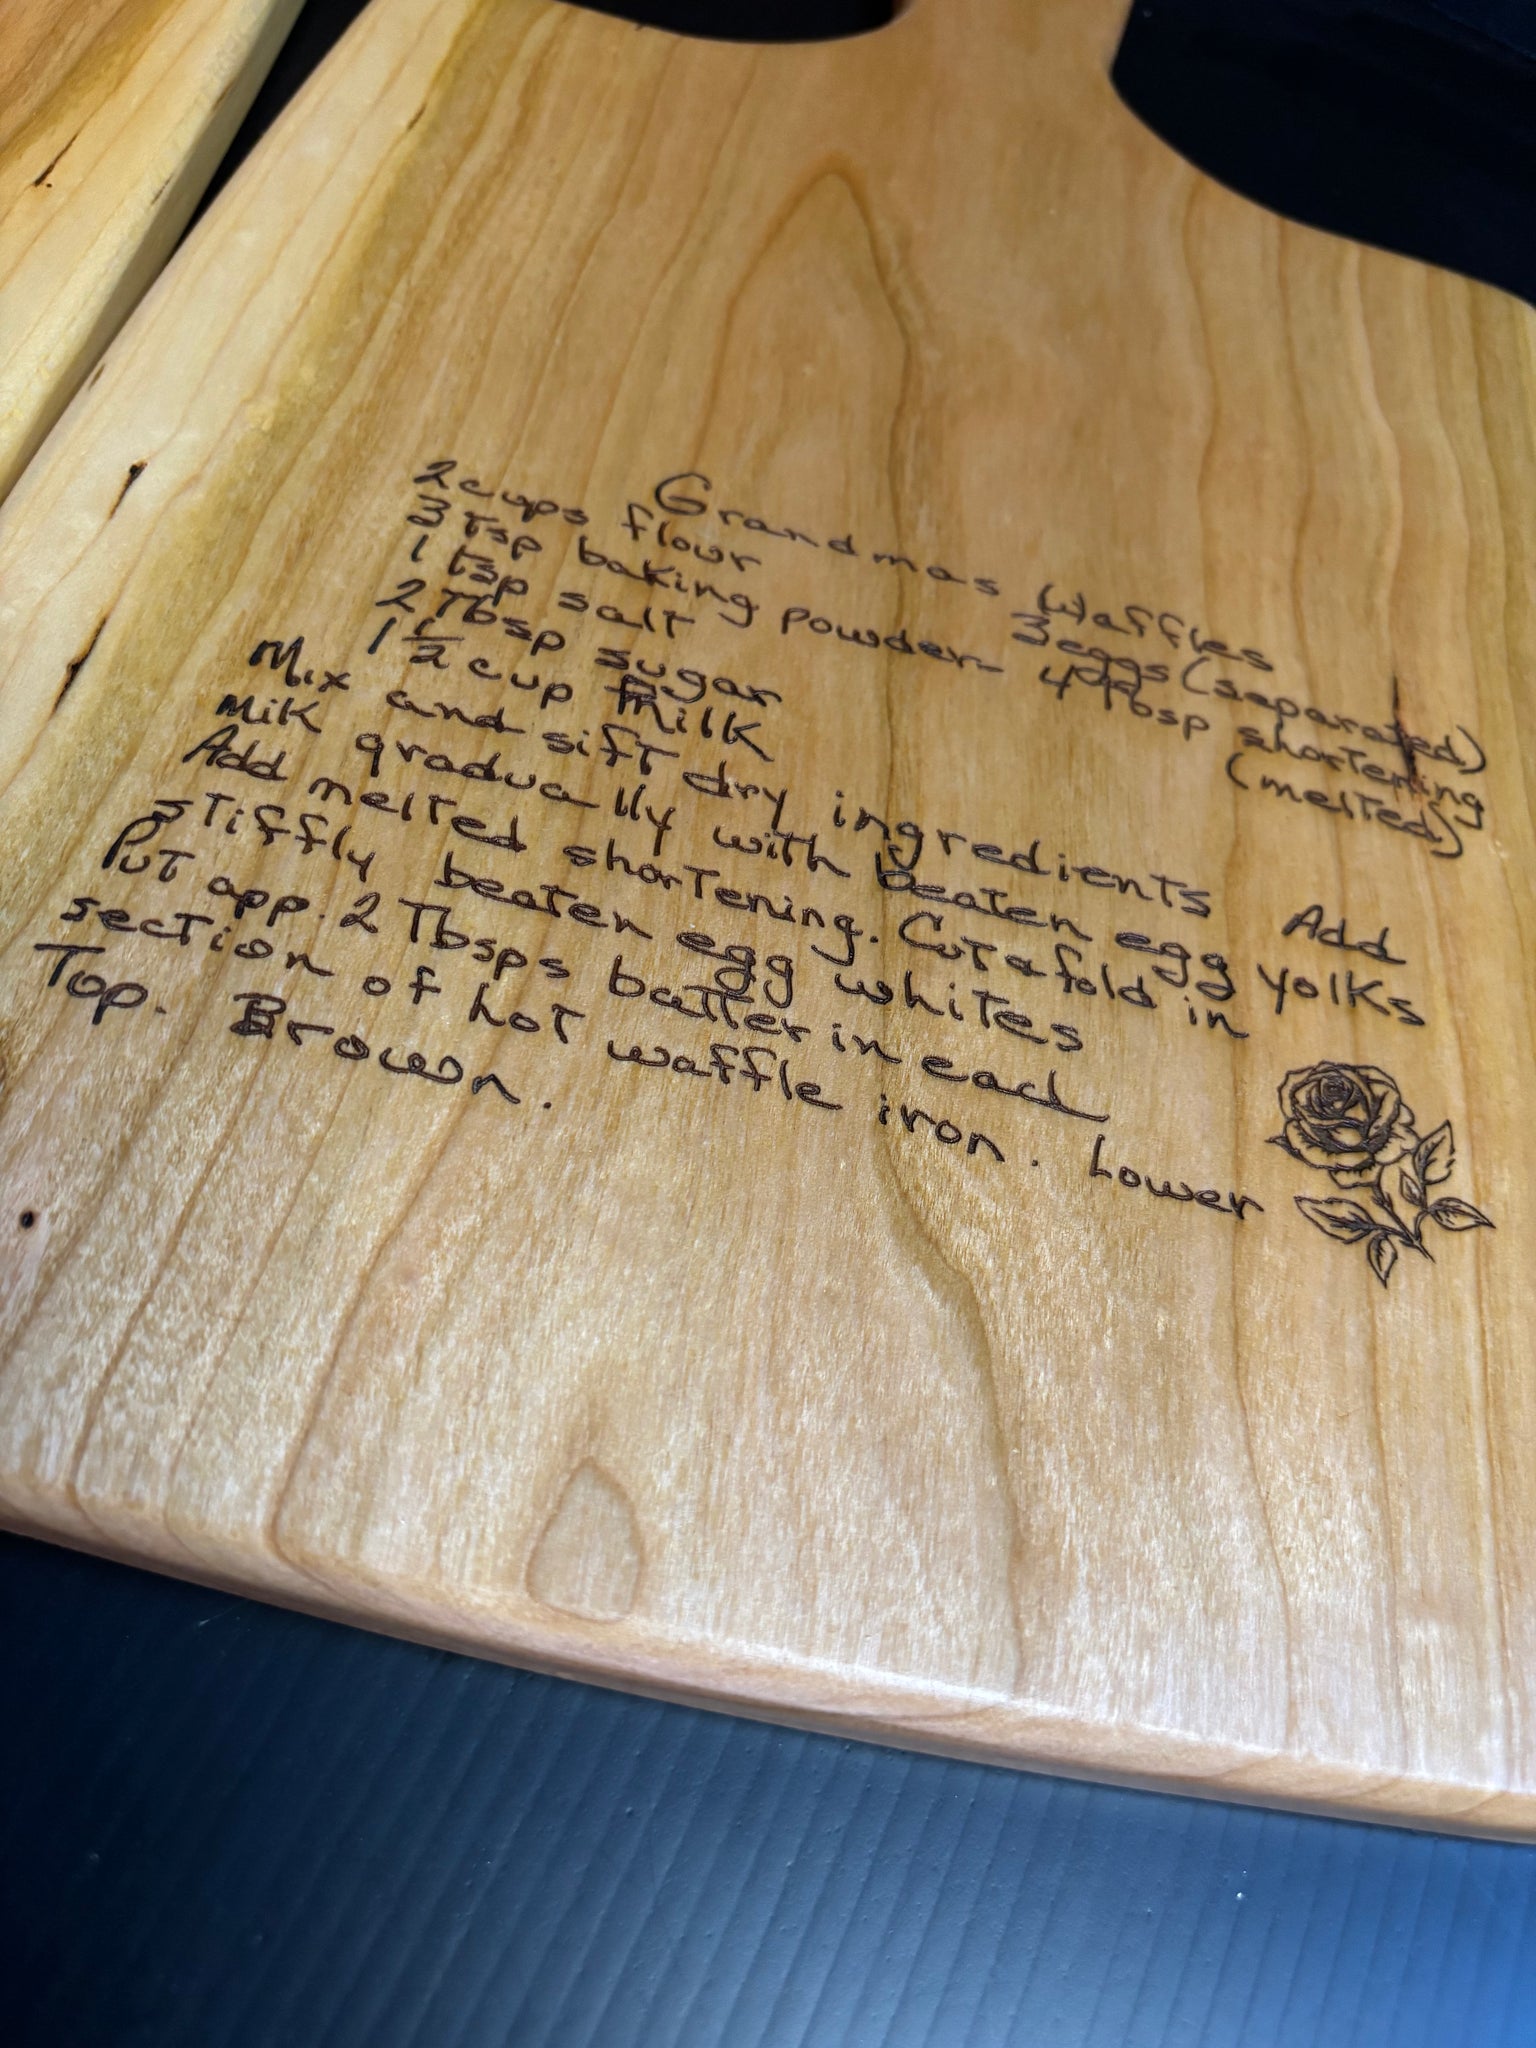 Grandmas Waffles
2 cups flour 3 eggs (separated)
3 Tsp baking powder- 4 Tbsp shortening
1 tsp salt (melted)
2 Tbsp sugar
1 1/2 cup milk
Mix and sift dry ingredients Add
Milk gradually with beaten egg yolks
Add melted shortening. Cut & fold in
stiffly beaten egg whites
Put app. 2 Tbsps batter in each
section of hot waffle iron. Lower
Top. Brown.